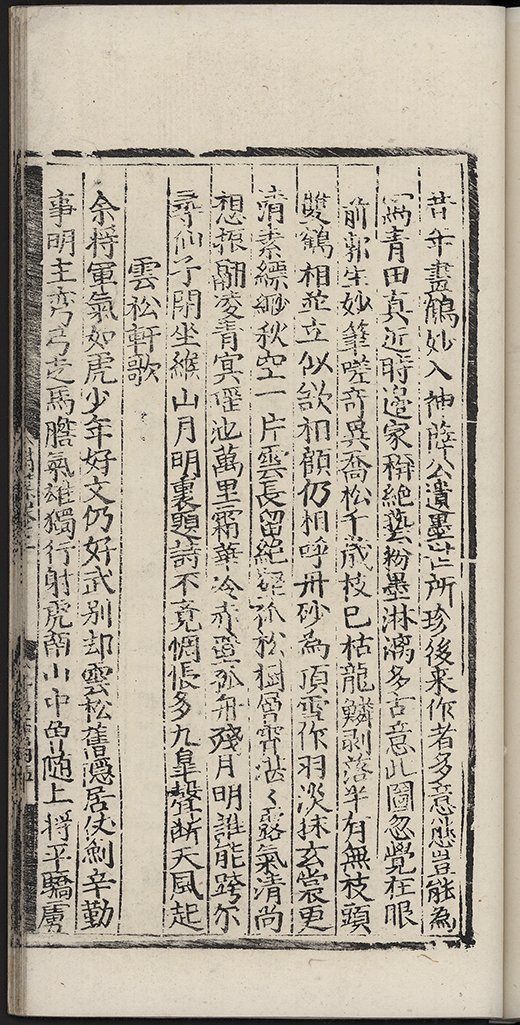 昔年畫鶴妙入神薛公遺墨世所珍後來作者多意態豈能為
寫青田真近時邊家稱絕藝粉墨淋漓多古意此圖忽覺在眼
前郭生妙筆嗟奇異喬松千歲枝已枯龍鱗剥落半有無枝頭
雙鶴相並立似欲相顧仍相呼丹砂為頂雪作羽淡抹玄裳更
清素縹緲秋空一片雲長留絕壁依松樹層霄湛〻露氣清尚
想振翮凌青冥瑤池萬里霜華冷赤壁孤舟殘月明誰能跨尔
尋仙子閑坐緱山月明裏題詩不竟惆悵多九皐聲断天風起
雲松軒歌
余將軍氣如虎少年好文仍好武别却雲松舊隱居仗劍辛勤
事明主弯弓走馬膽氣雄獨行射虎南山中西随上將平驕虜